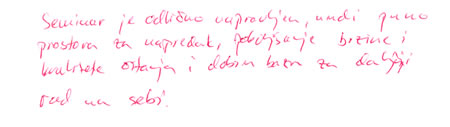 Seminar je odlično napravljen, nudi puno
prostora za napredak, poboljšanje brzine i
kvalitete čitanja i dobru bazu za daljnji
rad na sebi.